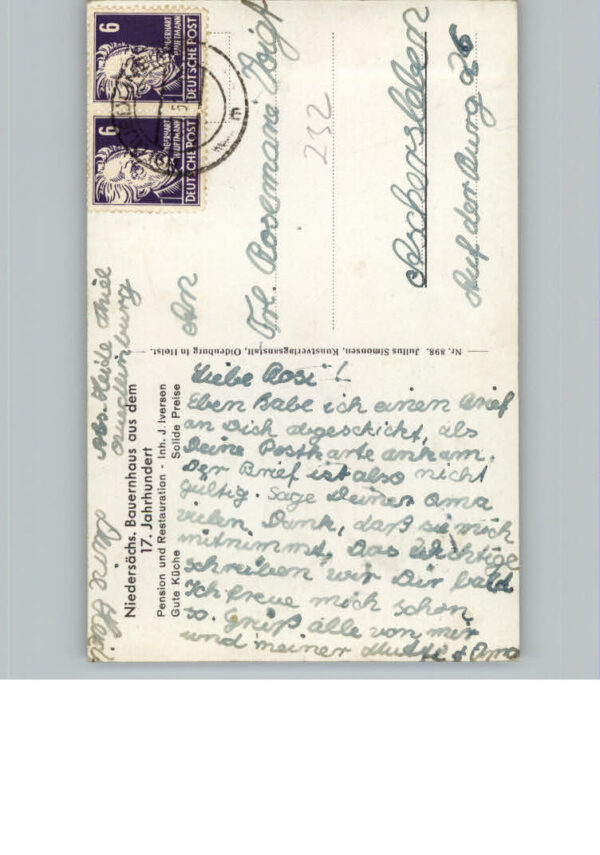 6
GERHART
HAUPTMANN
DEUTSCHE POST
6
GERHART
HAUPTMANN
DEUTSCHE POST
An
Frl. Rosemarie Voigt
232
Aschersleben
Auf der Burg 26
Abs. Heide Thiel
Quedlinburg
Nr. 898. Julius Simonsen, Kunstverlagsanstalt, Oldenburg in Holst.
Niedersächs. Bauernhaus aus dem
17. Jahrhundert
Pension und Restauration - Inh. J. Iversen
Gute Küche Solide Preise
Liebe Rosi!
Eben habe ich einen Brief
an Dich abgeschickt, als
Deine Postkarte ankam.
Der Brief ist also nicht
gültig. Sage Deiner Oma
vielen Dank, daß sie mich
mitnimmt. Das Wichtige
schreiben wir Dir bald
Ich freue mich schon
so. Grüß alle von mir
und meiner Mutti + Oma
Deine Heidi